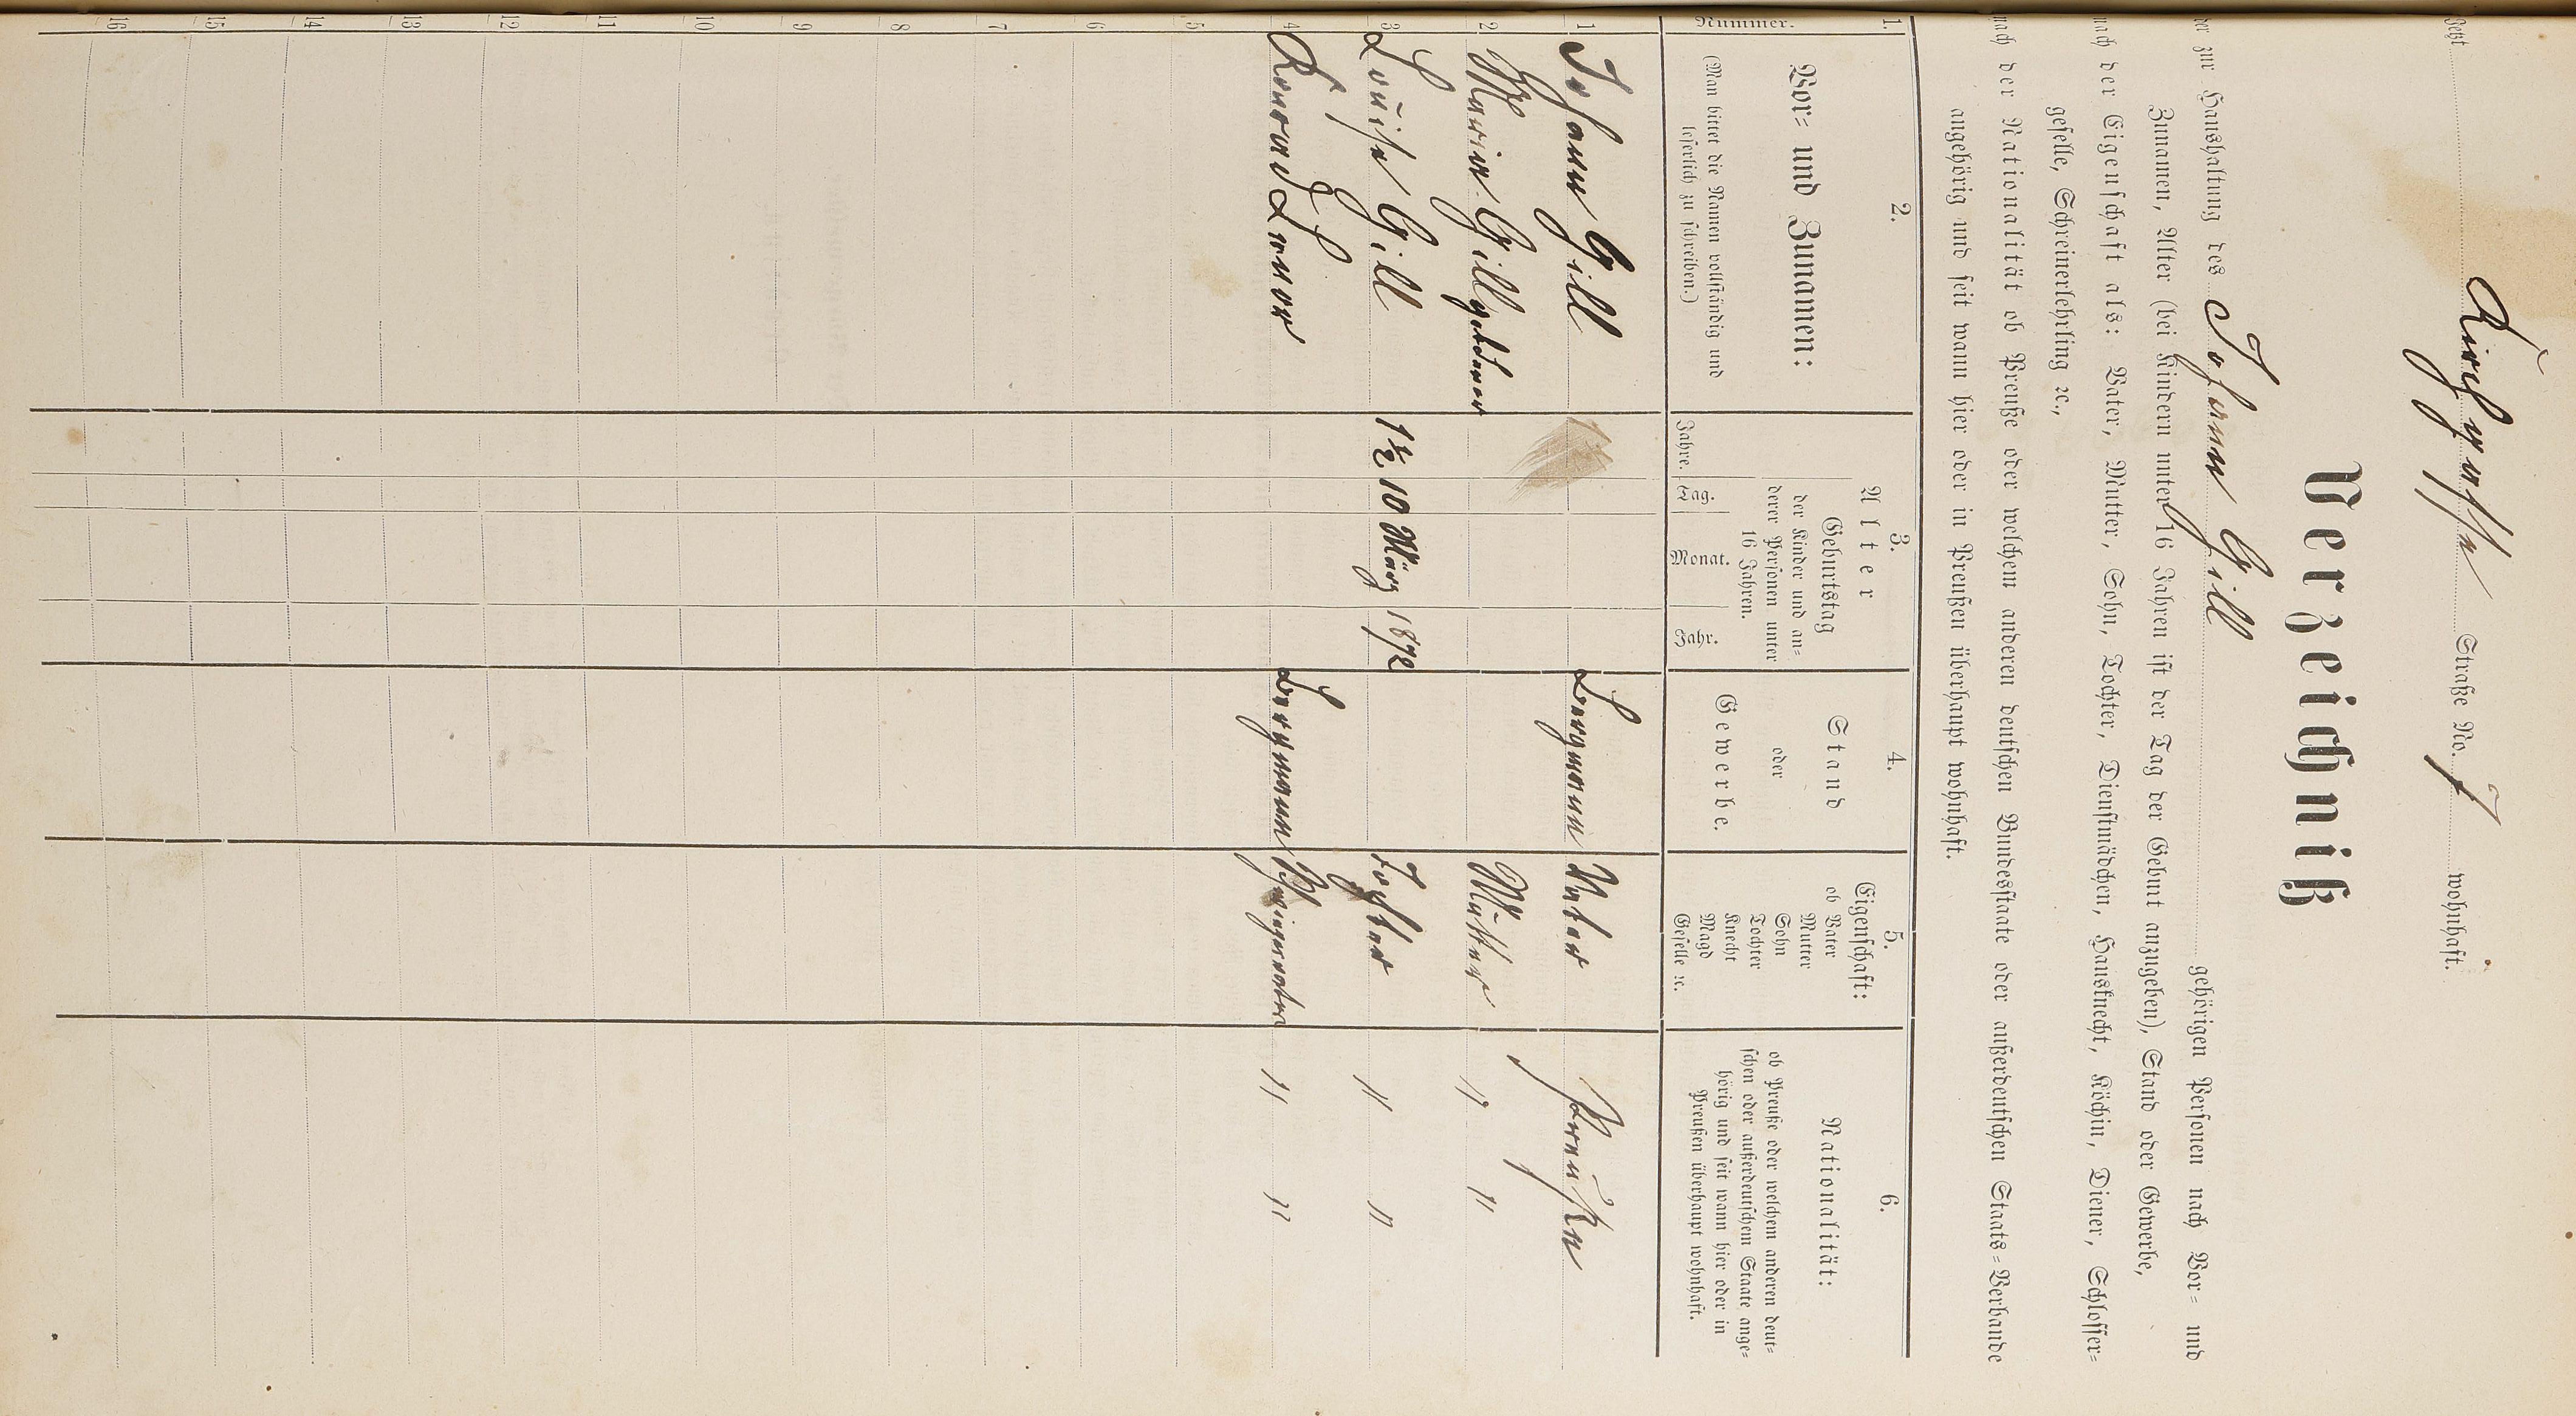 Jetzt Kirchgasse Straße No. 7 wohnhaft.
Verzeichniß
der zur Haushaltung des Johann Gill gehörigen Personen nach Vor= und
Zunamen, Alter (bei Kindern unter 16 Jahren ist der Tag der Geburt anzugeben), Stand oder Gewerbe,
nach der Eigenschaft als: Vater, Mutter, Sohn, Tochter, Dienstmädchen, Hausknecht, Köchin, Diener, Schlosser=
geselle, Schreinerlehrling ꝛc.,
nach der Nationalität ob Preuße oder welchem anderen deutschen Bundesstaate oder außerdeutschen Staats=Verbande
angehörig und seit wann hier oder in Preußen überhaupt wohnhaft.
1. 2. 3. 4. 5. 6.
Nummer.
Vor= und Zunamen:
(Man bittet die Namen vollständig und
leserlich zu schreiben.)
Alter
Geburtstag
der Kinder und an=
derer Personen unter
16 Jahren.
Jahre. Tag. Monat. Jahr.
Stand
oder
Gewerbe.
Eigenschaft:
ob Vater
Mutter
Sohn
Tochter
Knecht
Magd
Geselle ꝛc.
Nationalität:
ob Preuße oder welchem anderen deut=
schen oder außerdeutschem Staate ange=
hörig und seit wann hier oder in
Preußen überhaupt wohnhaft.
1 Johann Gill Bergmann Vater Preußen
2 Maria Gill Mutter " "
3 Louise Gill 1½ 10 März 1872 Tochter " "
4 Konrad Bergmann Schwiegervater " "
5
6
7
8
9
10
11
12
13
14
15
16